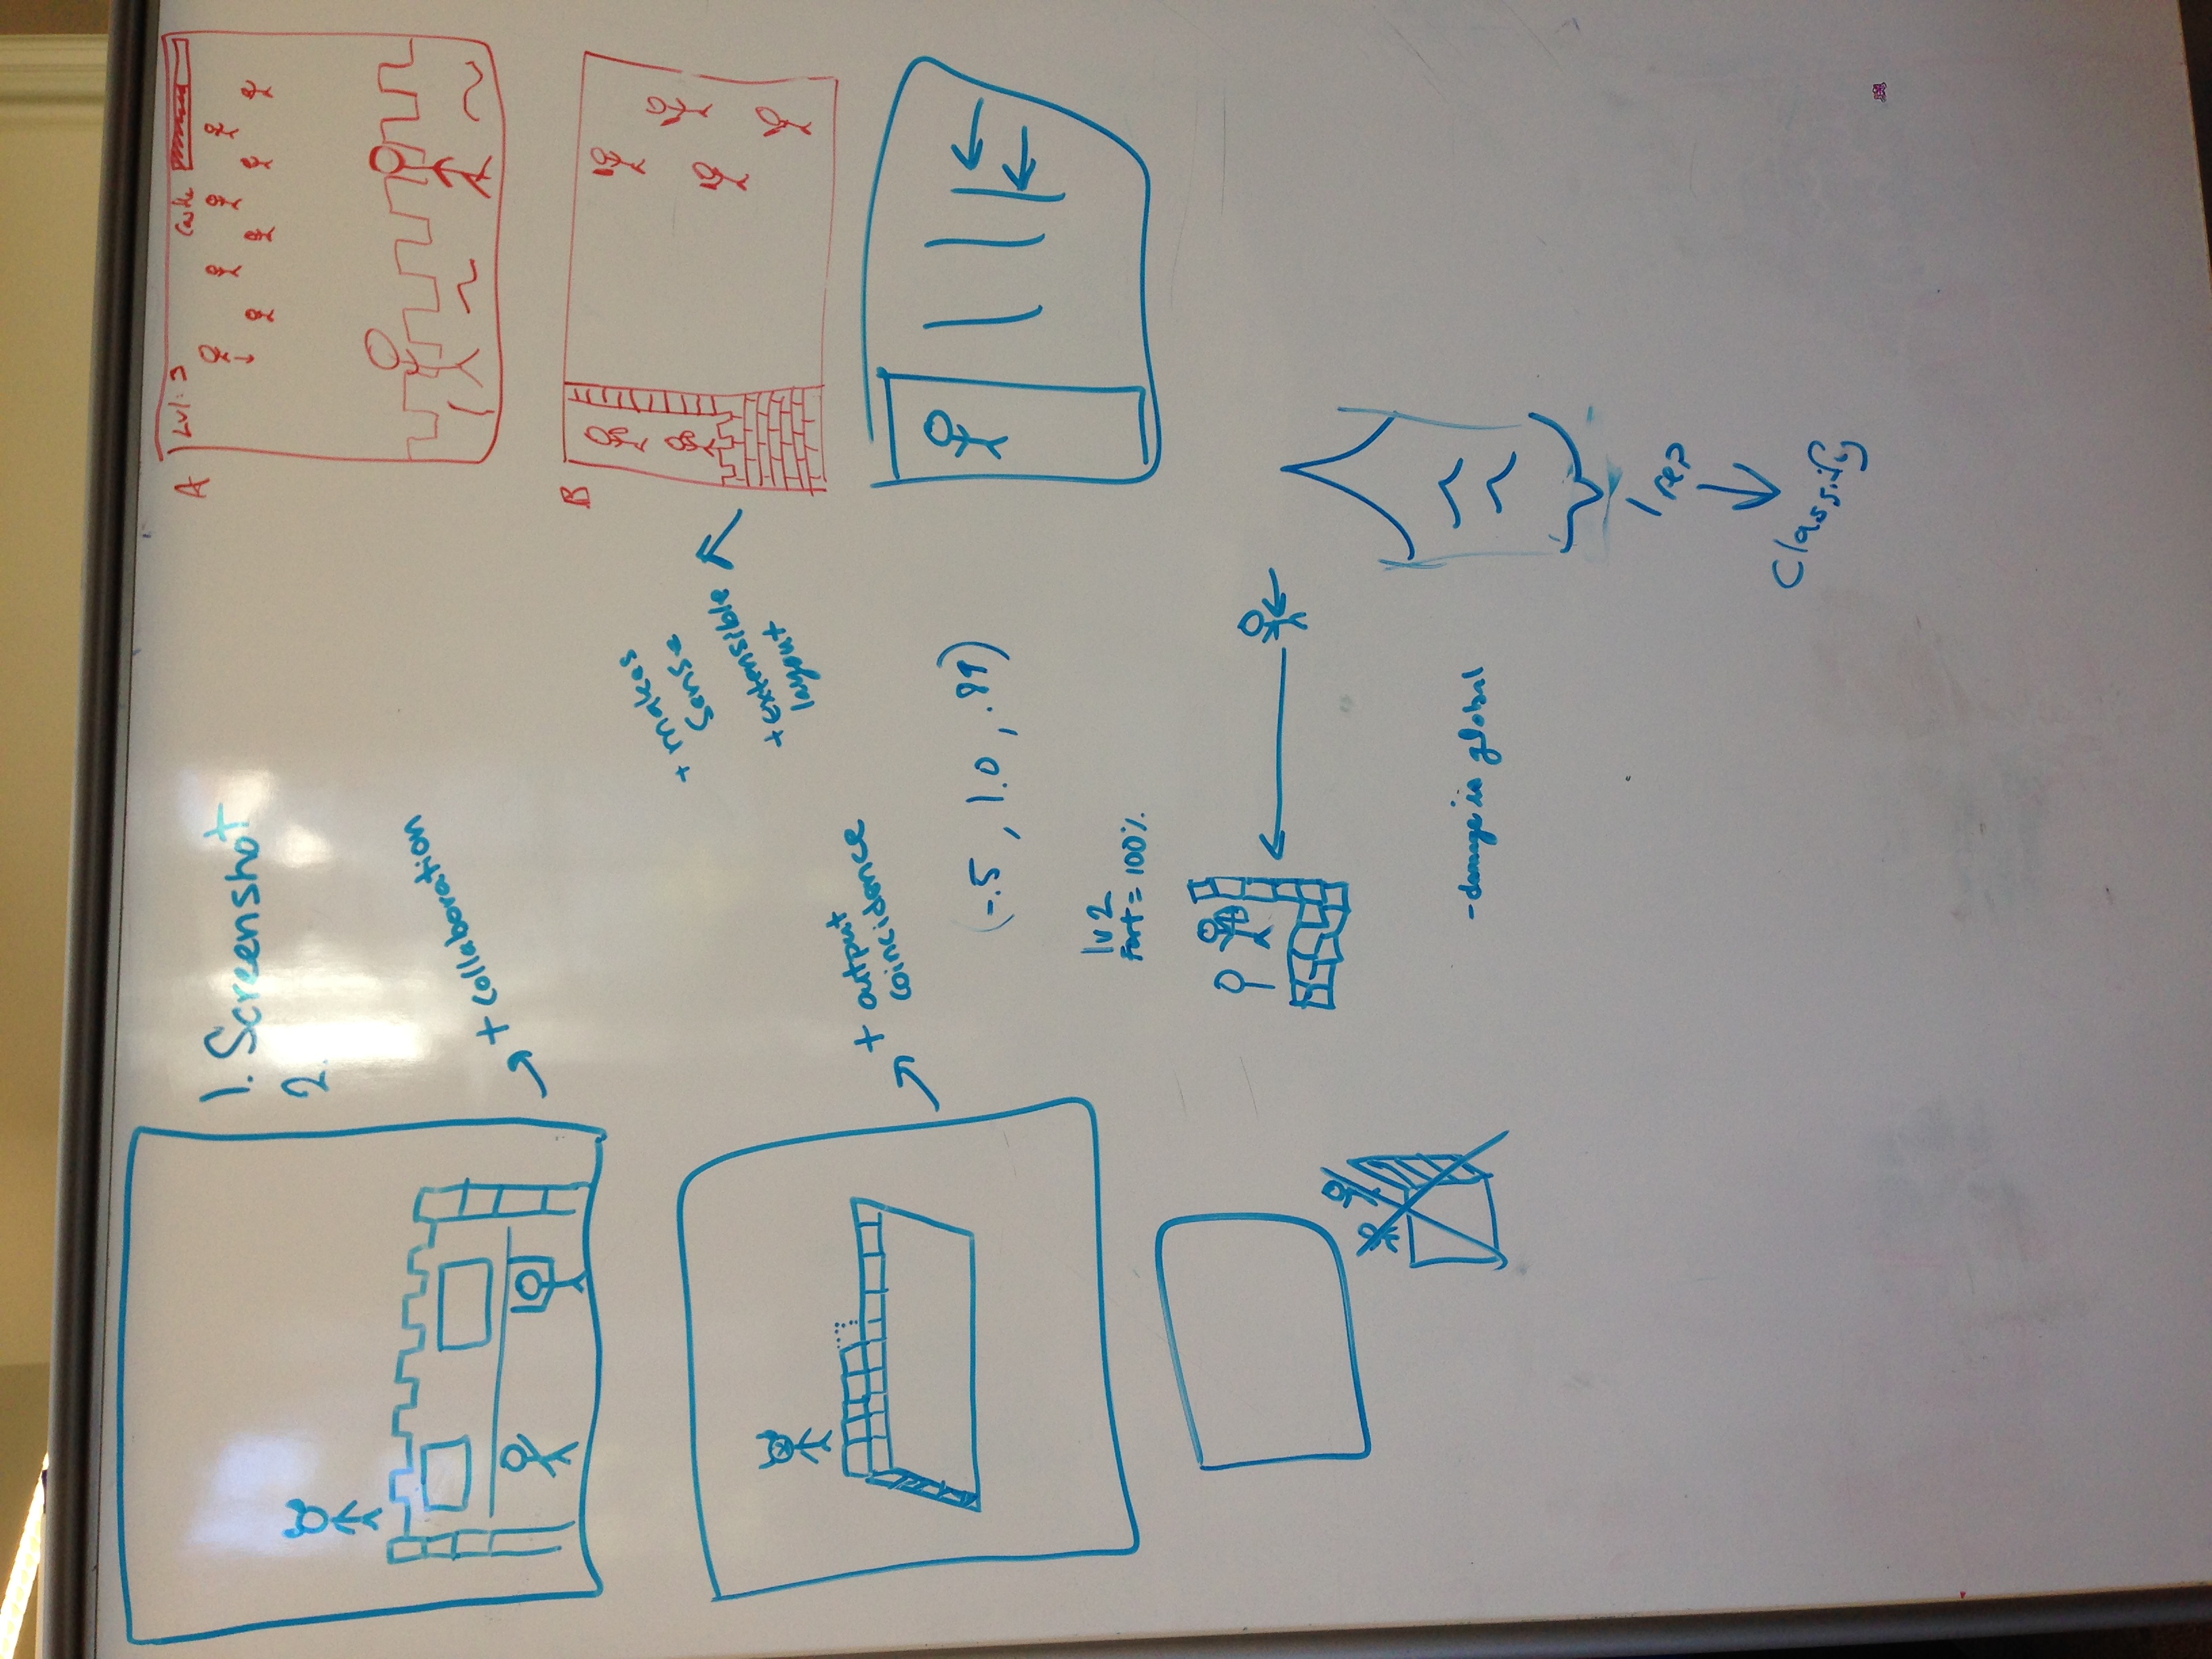 1. Screenshot
2.
+ collaboration
A
Lvl: 3
Castle
B
+ makes
sense
+ extensible
layout
+ output
coincidence
(-.5, 1.0, .89)
lv 2
Fort = 100%
- damage is global
1 rep
Classify